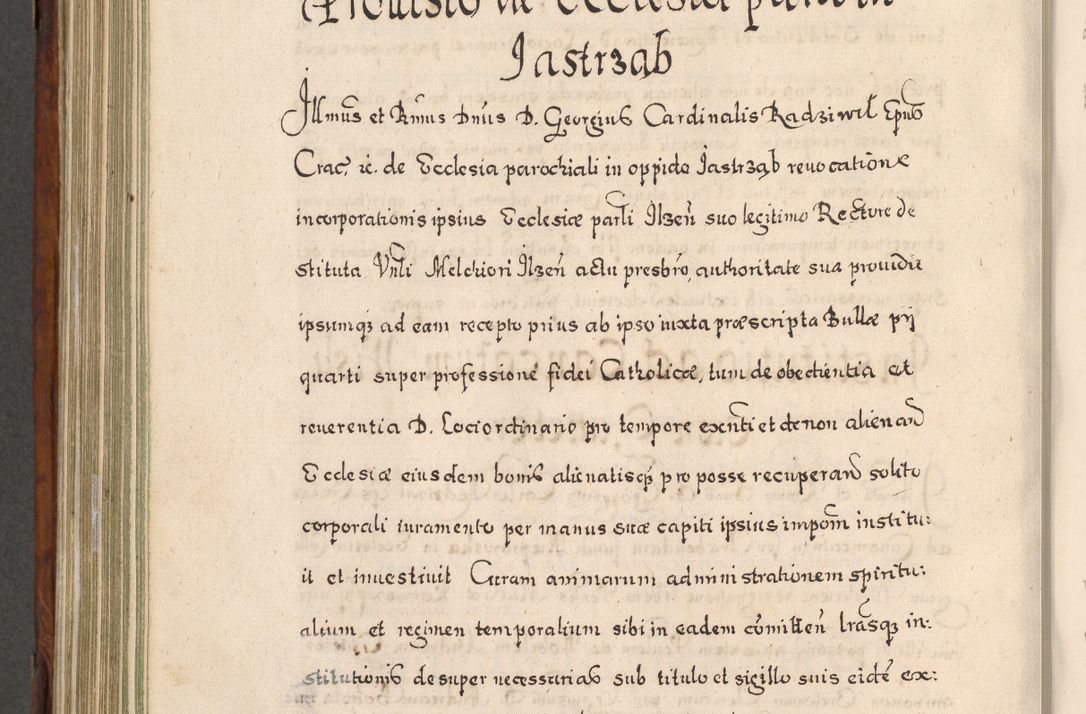 Provisio de Ecclesia paroch in
Jastrząb
Illmus et Rmus Dnus D. Georgius Cardinalis Radziwil Epus
Crac, ic. de Ecclesia parochiali in oppido Jastrząb revocatione
incorporationis ipsius Ecclesiæ parli Ilzen̄ suo legitimo Rectore de
stituta Vnli Melchiori Ilzen̄ actu presbro, authoritate sua providit
ipsumqz ad eam recepto prius ab ipso iuxta præscripta Bullæ pij
quarti super professione fidei Catholicæ, tum de obedientia et
reuerentia D. Lociordinario pro tempore exenti et de non alienand
Ecclesiæ eiusdem bonis alienatisqz pro posse recuperand solito
corporali iuramento per manus suæ capiti ipsius impom institu:
it et inuestiuit Curam animarum administrationem spiritu:
alium et regimen temporalium sibi in eadem comitten̄ lrasqz in:
stitutionis desuper necessarias sub titulo et sigillo suis eidē ex: